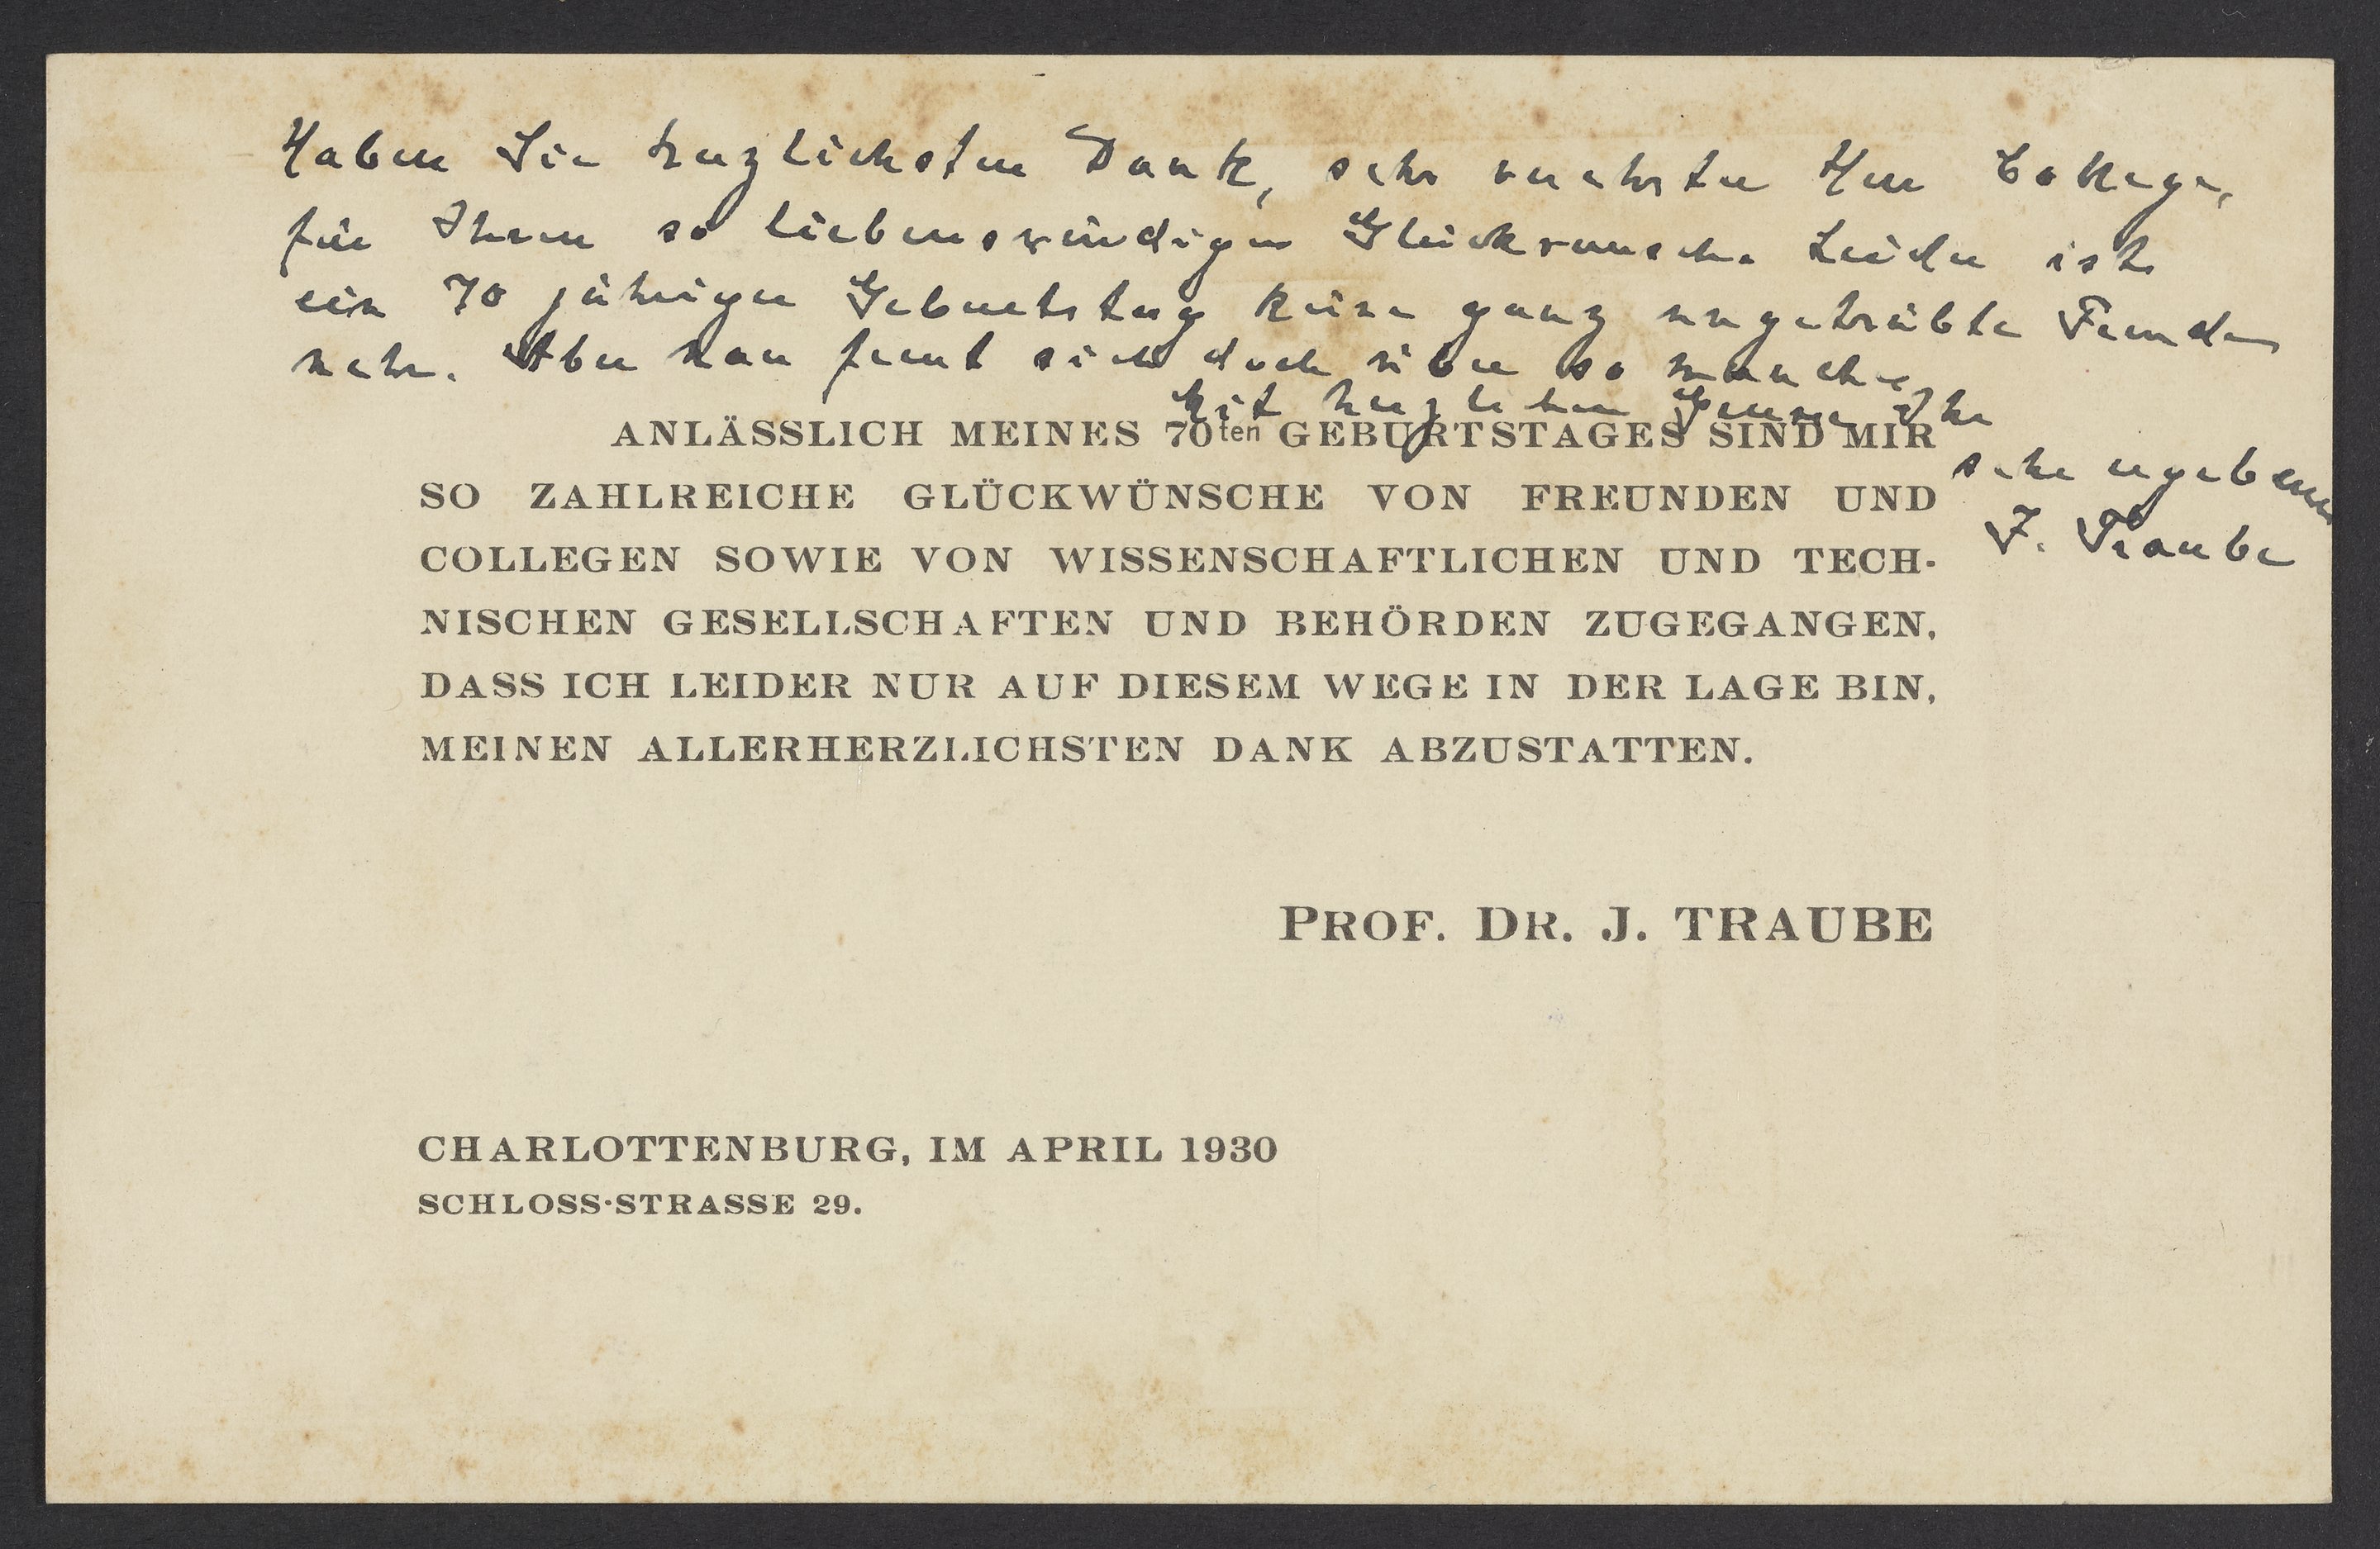 Haben Sie herzlichsten Dank, sehr verehrter Herr College,
für Ihren so liebenswürdigen Glückwunsch. Leider ist
ein 70 jähriger Geburtstag keine ganz ungetrübte Freude
mehr. Aber man freut sich doch über so manches
Mit herzlichem Grusse Ihr
sehr ergebener
J. Traube
ANLÄSSLICH MEINES 70ten GEBURTSTAGES SIND MIR
SO ZAHLREICHE GLÜCKWÜNSCHE VON FREUNDEN UND
COLLEGEN SOWIE VON WISSENSCHAFTLICHEN UND TECH-
NISCHEN GESELLSCHAFTEN UND BEHÖRDEN ZUGEGANGEN,
DASS ICH LEIDER NUR AUF DIESEM WEGE IN DER LAGE BIN,
MEINEN ALLERHERZLICHSTEN DANK ABZUSTATTEN.
PROF. DR. J. TRAUBE
CHARLOTTENBURG, IM APRIL 1930
SCHLOSS-STRASSE 29.